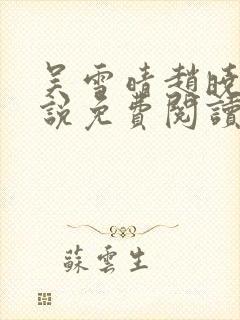 吳雪晴趙曉
說免費閱讀
蘇雲生